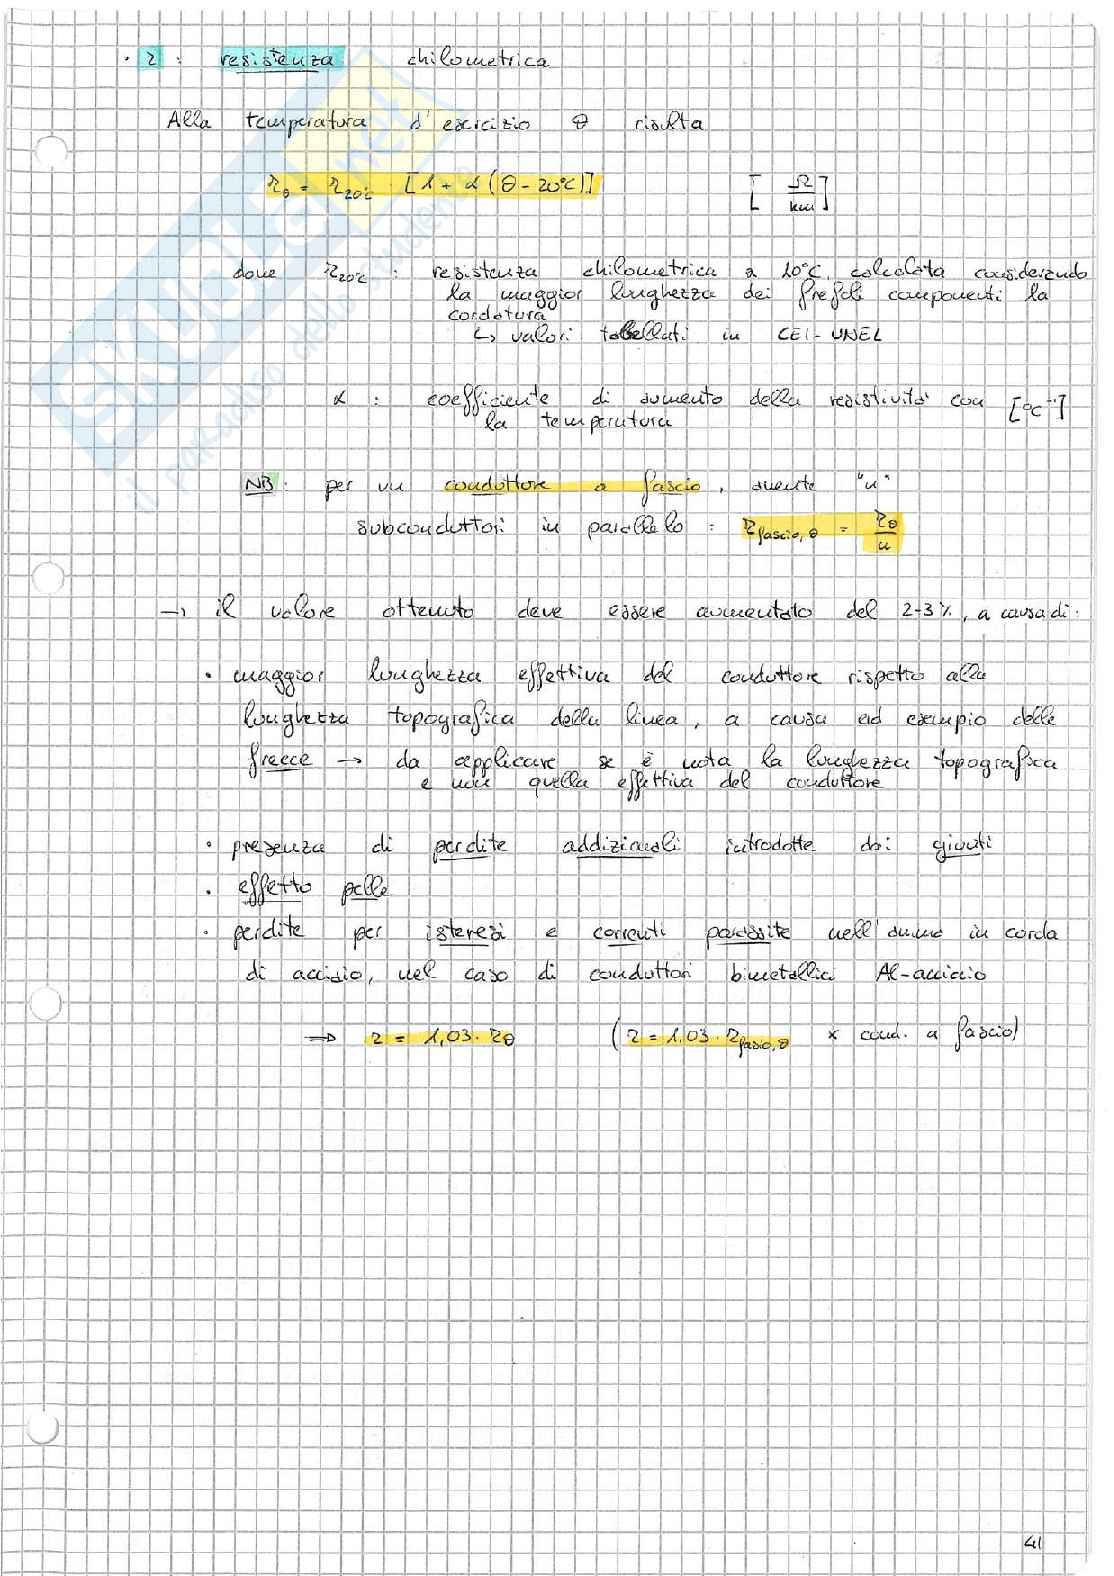 · r : resistenza chilometrica
Alla temperatura d'esercizio θ risulta
r_θ = r_20°C · [1 + α (θ - 20°C)] [Ω/km]
dove r_20°C : resistenza chilometrica a 20°C, calcolata considerando
la maggior lunghezza dei trefoli componenti la
cordatura
↳ valori tabellati in CEI-UNEL
α : coefficiente di aumento della resistività con [°C⁻¹]
la temperatura
NB: per un conduttore a fascio, avente "n"
subconduttori in parallelo : r_fascio,θ = r_θ/n
→ il valore ottenuto deve essere aumentato del 2-3%, a causa di:
• maggior lunghezza effettiva del conduttore rispetto alla
lunghezza topografica della linea, a causa ad esempio delle
frecce → da applicare se è nota la lunghezza topografica
e non quella effettiva del conduttore
• presenza di perdite addizionali introdotte dai giunti
• effetto pelle
• perdite per isteresi e correnti parassite nell'anima in corda
di acciaio, nel caso di conduttori bimetallici Al-acciaio
⇒ r = 1,03 · r_θ (r = 1,03 · r_fascio,θ x cond. a fascio)
41
SKUOLA.net
il paradiso dello studente